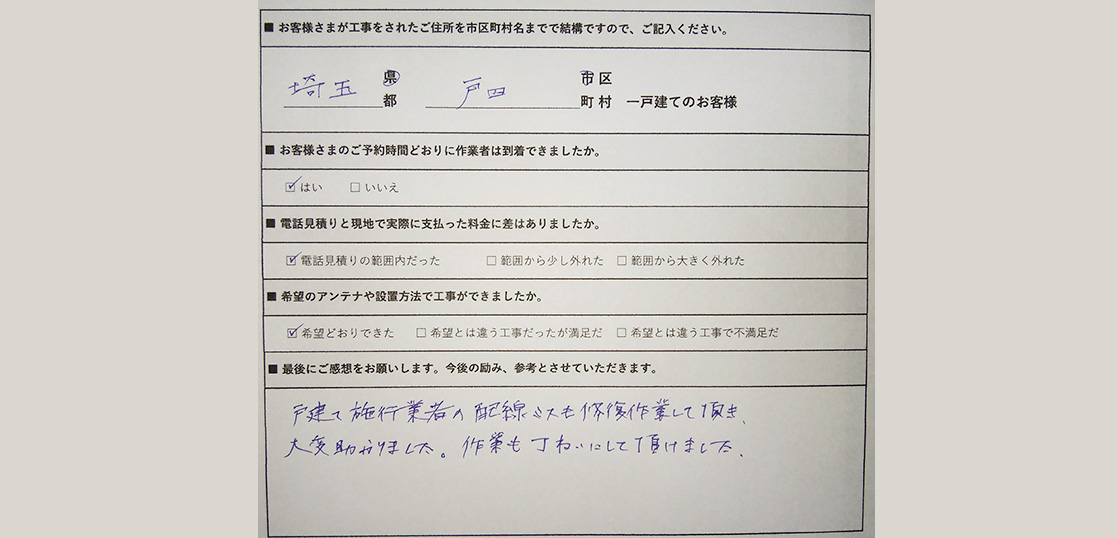 ■ お客様さまが工事をされたご住所を市区町村名までで結構ですので、ご記入ください。
埼玉 県 戸田 市区
都 町村 一戸建てのお客様
■ お客様さまのご予約時間どおりに作業者は到着できましたか。
☑はい □いいえ
■ 電話見積りと現地で実際に支払った料金に差はありましたか。
☑電話見積りの範囲内だった □範囲から少し外れた □範囲から大きく外れた
■ 希望のアンテナや設置方法で工事ができましたか。
☑希望どおりできた □希望とは違う工事だったが満足だ □希望とは違う工事で不満足だ
■ 最後にご感想をお願いします。今後の励み、参考とさせていただきます。
戸建て施行業者の配線ミスも修復作業して頂き、
大変助かりました。作業も丁ねいにして頂けました、